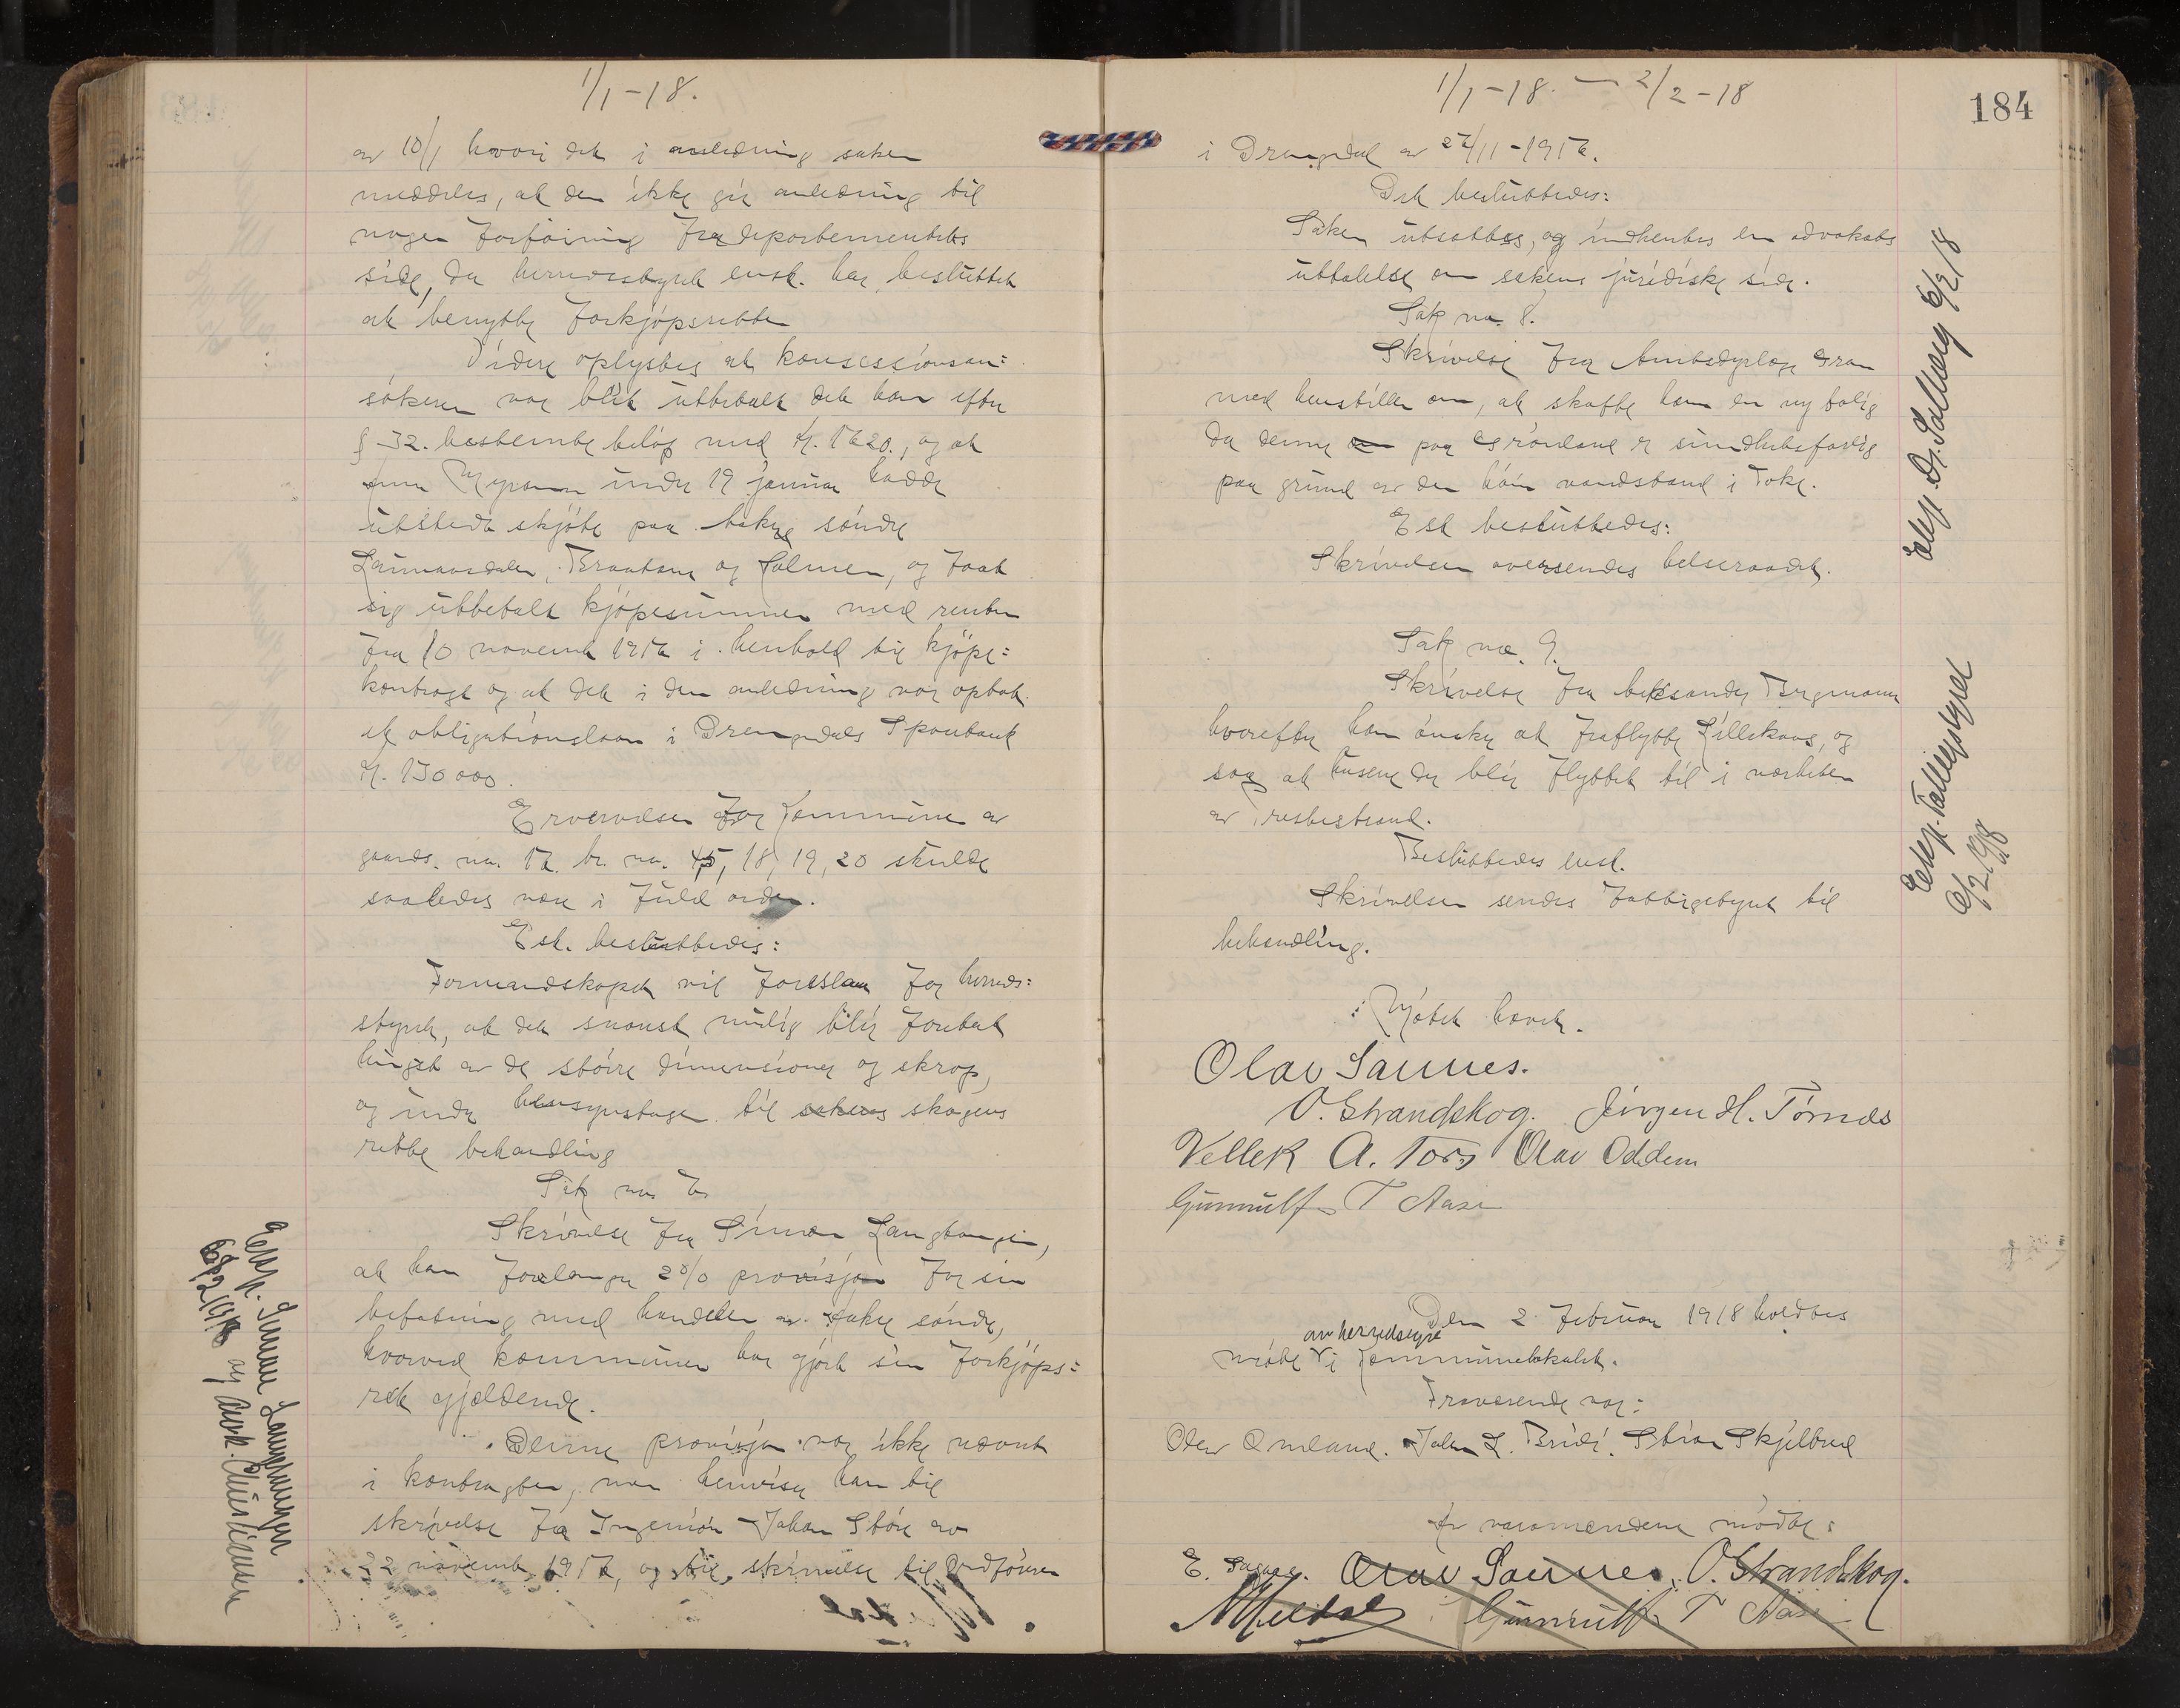 1/1-18.
av 10/1 hvori det i anledning saken
meddeles, at den ikke gir anledning til
nogen forføining fra departementets
side, da herredsstyret enst. har besluttet
at benytte forkjøpsretten
Videre oplystes at konsessionsan=
søkeren var blit utbetalt det han efter
§ 32. bestemte beløp med kr. 1620., og at
under 19 januar hadde
utstedt skjøte paa Søndre
og Holmen, og faat
sig utbetalt kjøpesummen med renter
fra 10 novemb 1917 i henhold til kjøpe=
kontragt og at det i den anledning var optat
et obligationslaan i Drangedals Sparebank
kr. 150000.
Ervervelsen for kommunen av
gaards. no. 17. br. no. 45, 18, 19, 20 skulde
saaledes være i fuld orden.
Est. besluttedes:
Formandskapet vil foreslaa for herreds=
styret, at det snarest mulig blir foretat
hugst av de større dimensioner og skrap,
og under hensyntagen til skogens
rette behandling
Sak no 7.
Skrivelse fra Simon Langtangen,
at han forlanger 2% provisjon for sin
befatning med handelen av søndre,
hvorved kommunen har gjort sin forkjøps=
ret gjældende.
Denne provisjon var ikke nævnt
i kontragten, men henviser han til
skrivelse fra Ingeniør Johan Støre av
22 novemb. 1917, og til skrivelse til Ordføreren
Eksp. Simon Langtangen
6/2 1918 og Advk. Christiansen
1/1-18. — 2/2-18
184
i Drangedal av 27/11-1917.
Det besluttedes:
Saken utsættes, og indhentes en advokats
uttalelse om sakens juridiske side.
Sak no. 8.
Skrivelse fra Amtsdyrlæge Gran
med henstillen om, at skaffe ham en ny bolig
da denne paa Grønland er sundhetsfarlig
paa grund av den høie vandstand i Toke.
Est besluttedes:
Skrivelsen oversendes helseraadet.
Sak no. 9.
Skrivelse fra Bergmann
hvorefter han ønsker at fraflytte Lillekaas, og
saa at husene der blir flyttet til i nærheten
av
Besluttedes enst.
Skrivelsen sendes fattigstyret til
behandling.
Møtet hævet.
Olav Saunes.
O. Strandskog. Jørgen H. Tørnes
Vellek A. Tors Olav Oddem
Gunnulf T Aase
Den 2 februar 1918 holdtes
av herredstyre
møte i kommunelokalet.
Fraværende var:
Olav Omland. John L. Bride. Stian Skjelbred
Av varamændene møtte:
E. Olav Saunes. O. Strandskog.
Gunnulf T Aase
eksp. Dr. Solberg 6/2 18
Eksp. Fattigstyret
6/2 1918